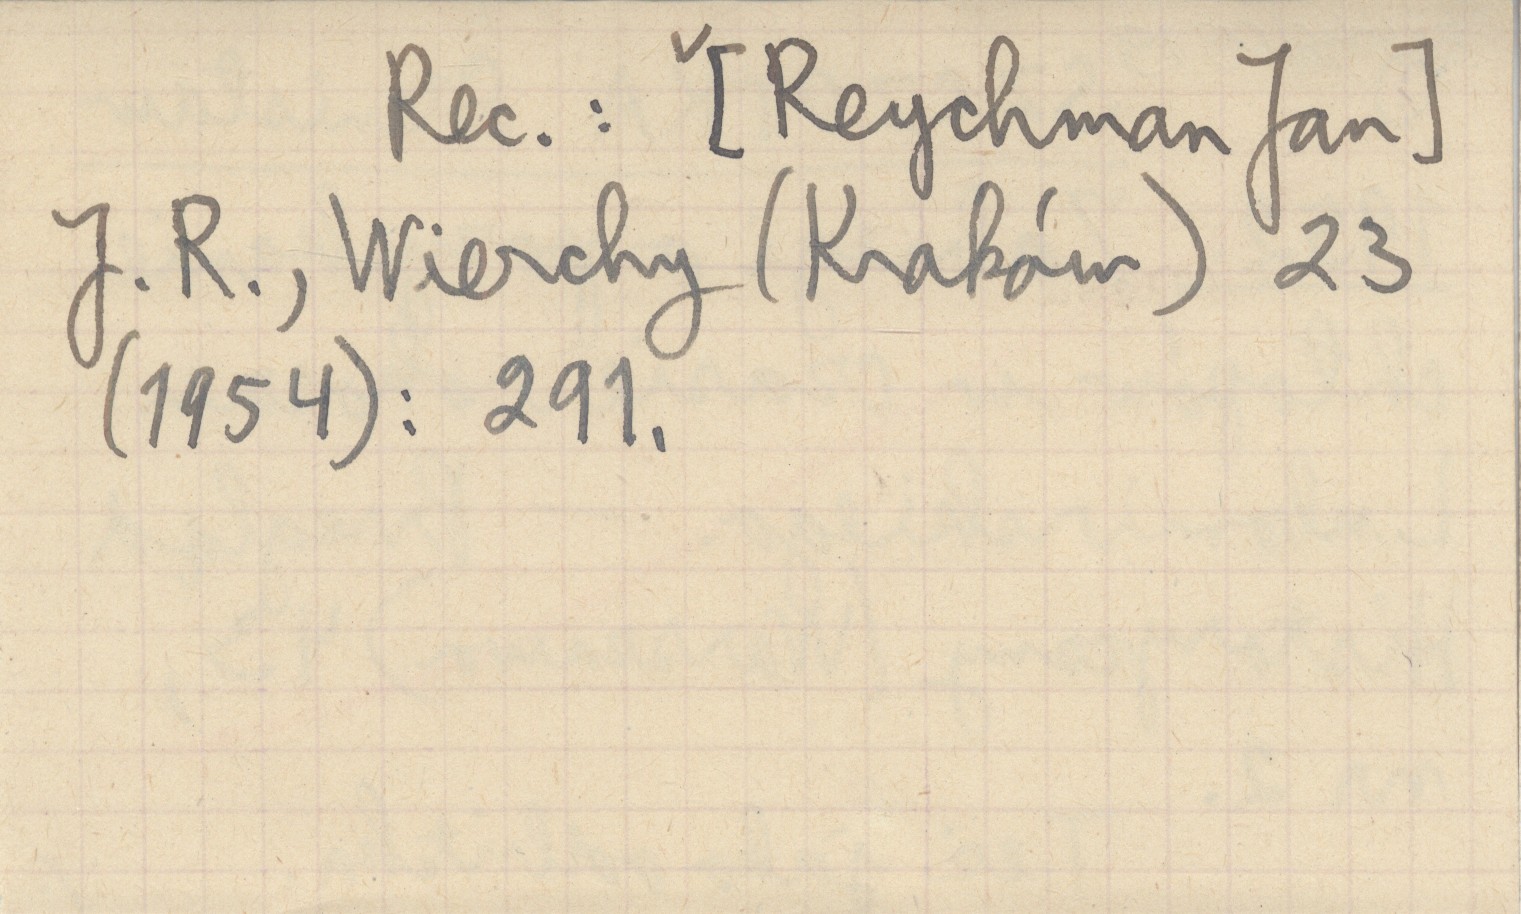 Rec.: [Reychman Jan]
J. R., Wierchy (Kraków) 23
(1954): 291.